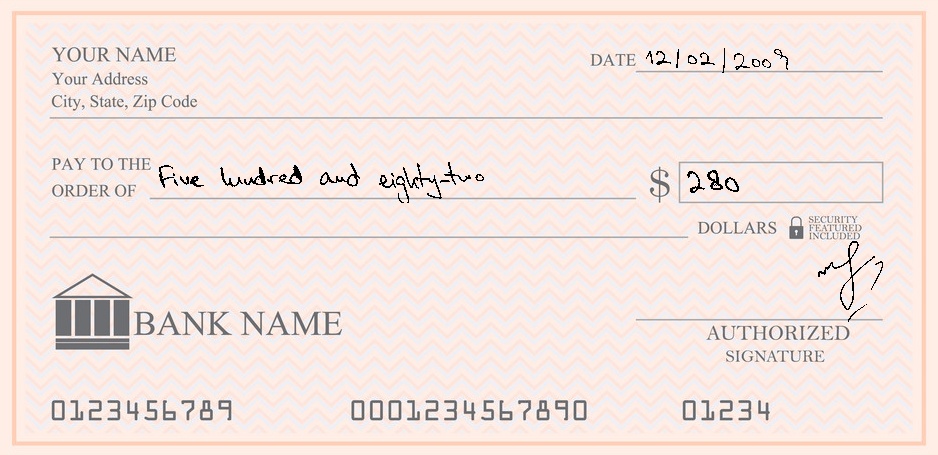 YOUR NAME
Your Address
City, State, Zip Code
DATE 12/02/2009
PAY TO THE
ORDER OF Five hundred and eighty-two $ 280
DOLLARS SECURITY
FEATURED
INCLUDED
BANK NAME
AUTHORIZED
SIGNATURE
0123456789 0001234567890 01234